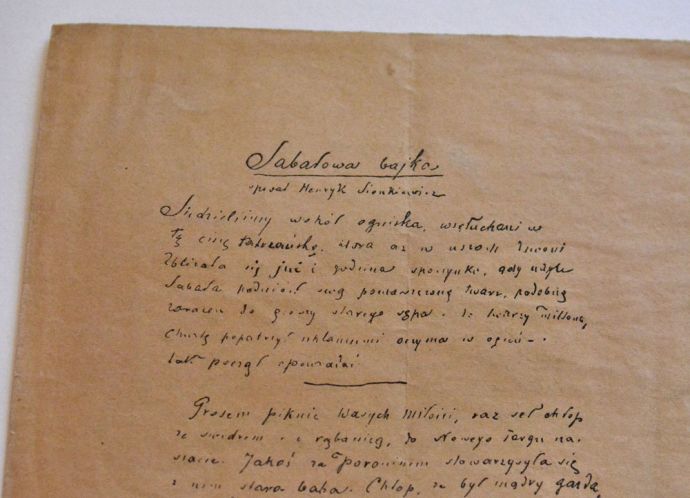 Sabałowa bajka
spisał Henryk Sienkiewicz
Siedzieliśmy wokół ogniska, wsłuchani w
tę ciszę tatrzańską, która aż w uszach dzwoni
Zbliżała się już i godzina spoczynku, gdy nagle
Sabała podniósł swą pomarszczoną twarz, podobną
zarazem do głowy starego sępa i do twarzy Miltona,
chwilę popatrzył szklannemi oczyma w ogień
tak począł opowiadać
Prosem piknie Wasych Miłości, raz seł chłop
ze świdrem i z rąbanicą, do Nowego Targu na
stacie. Jakoś za Poroninem stowarzysyła się
z nim stara baba. Chłop, ze był mądry gazda